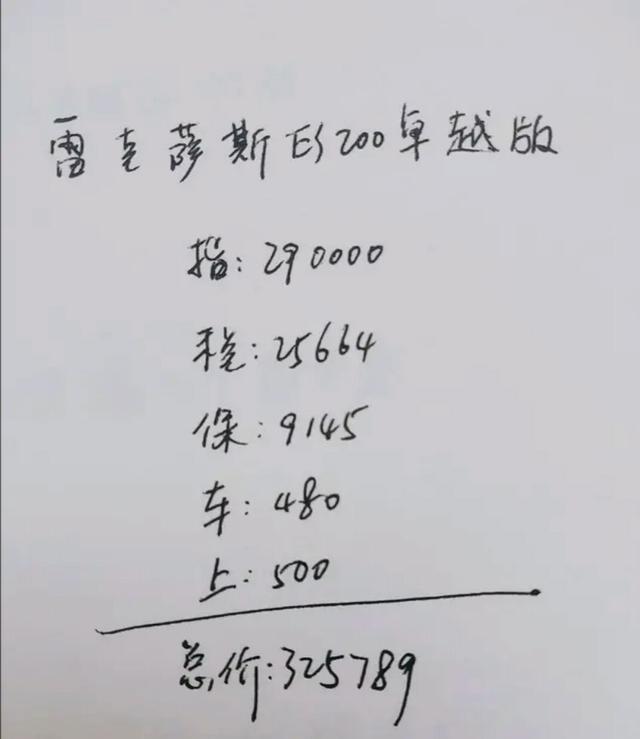 雷克萨斯ES200卓越版
指:290000
税:25664
保:9145
车:480
上:500
总价:325789